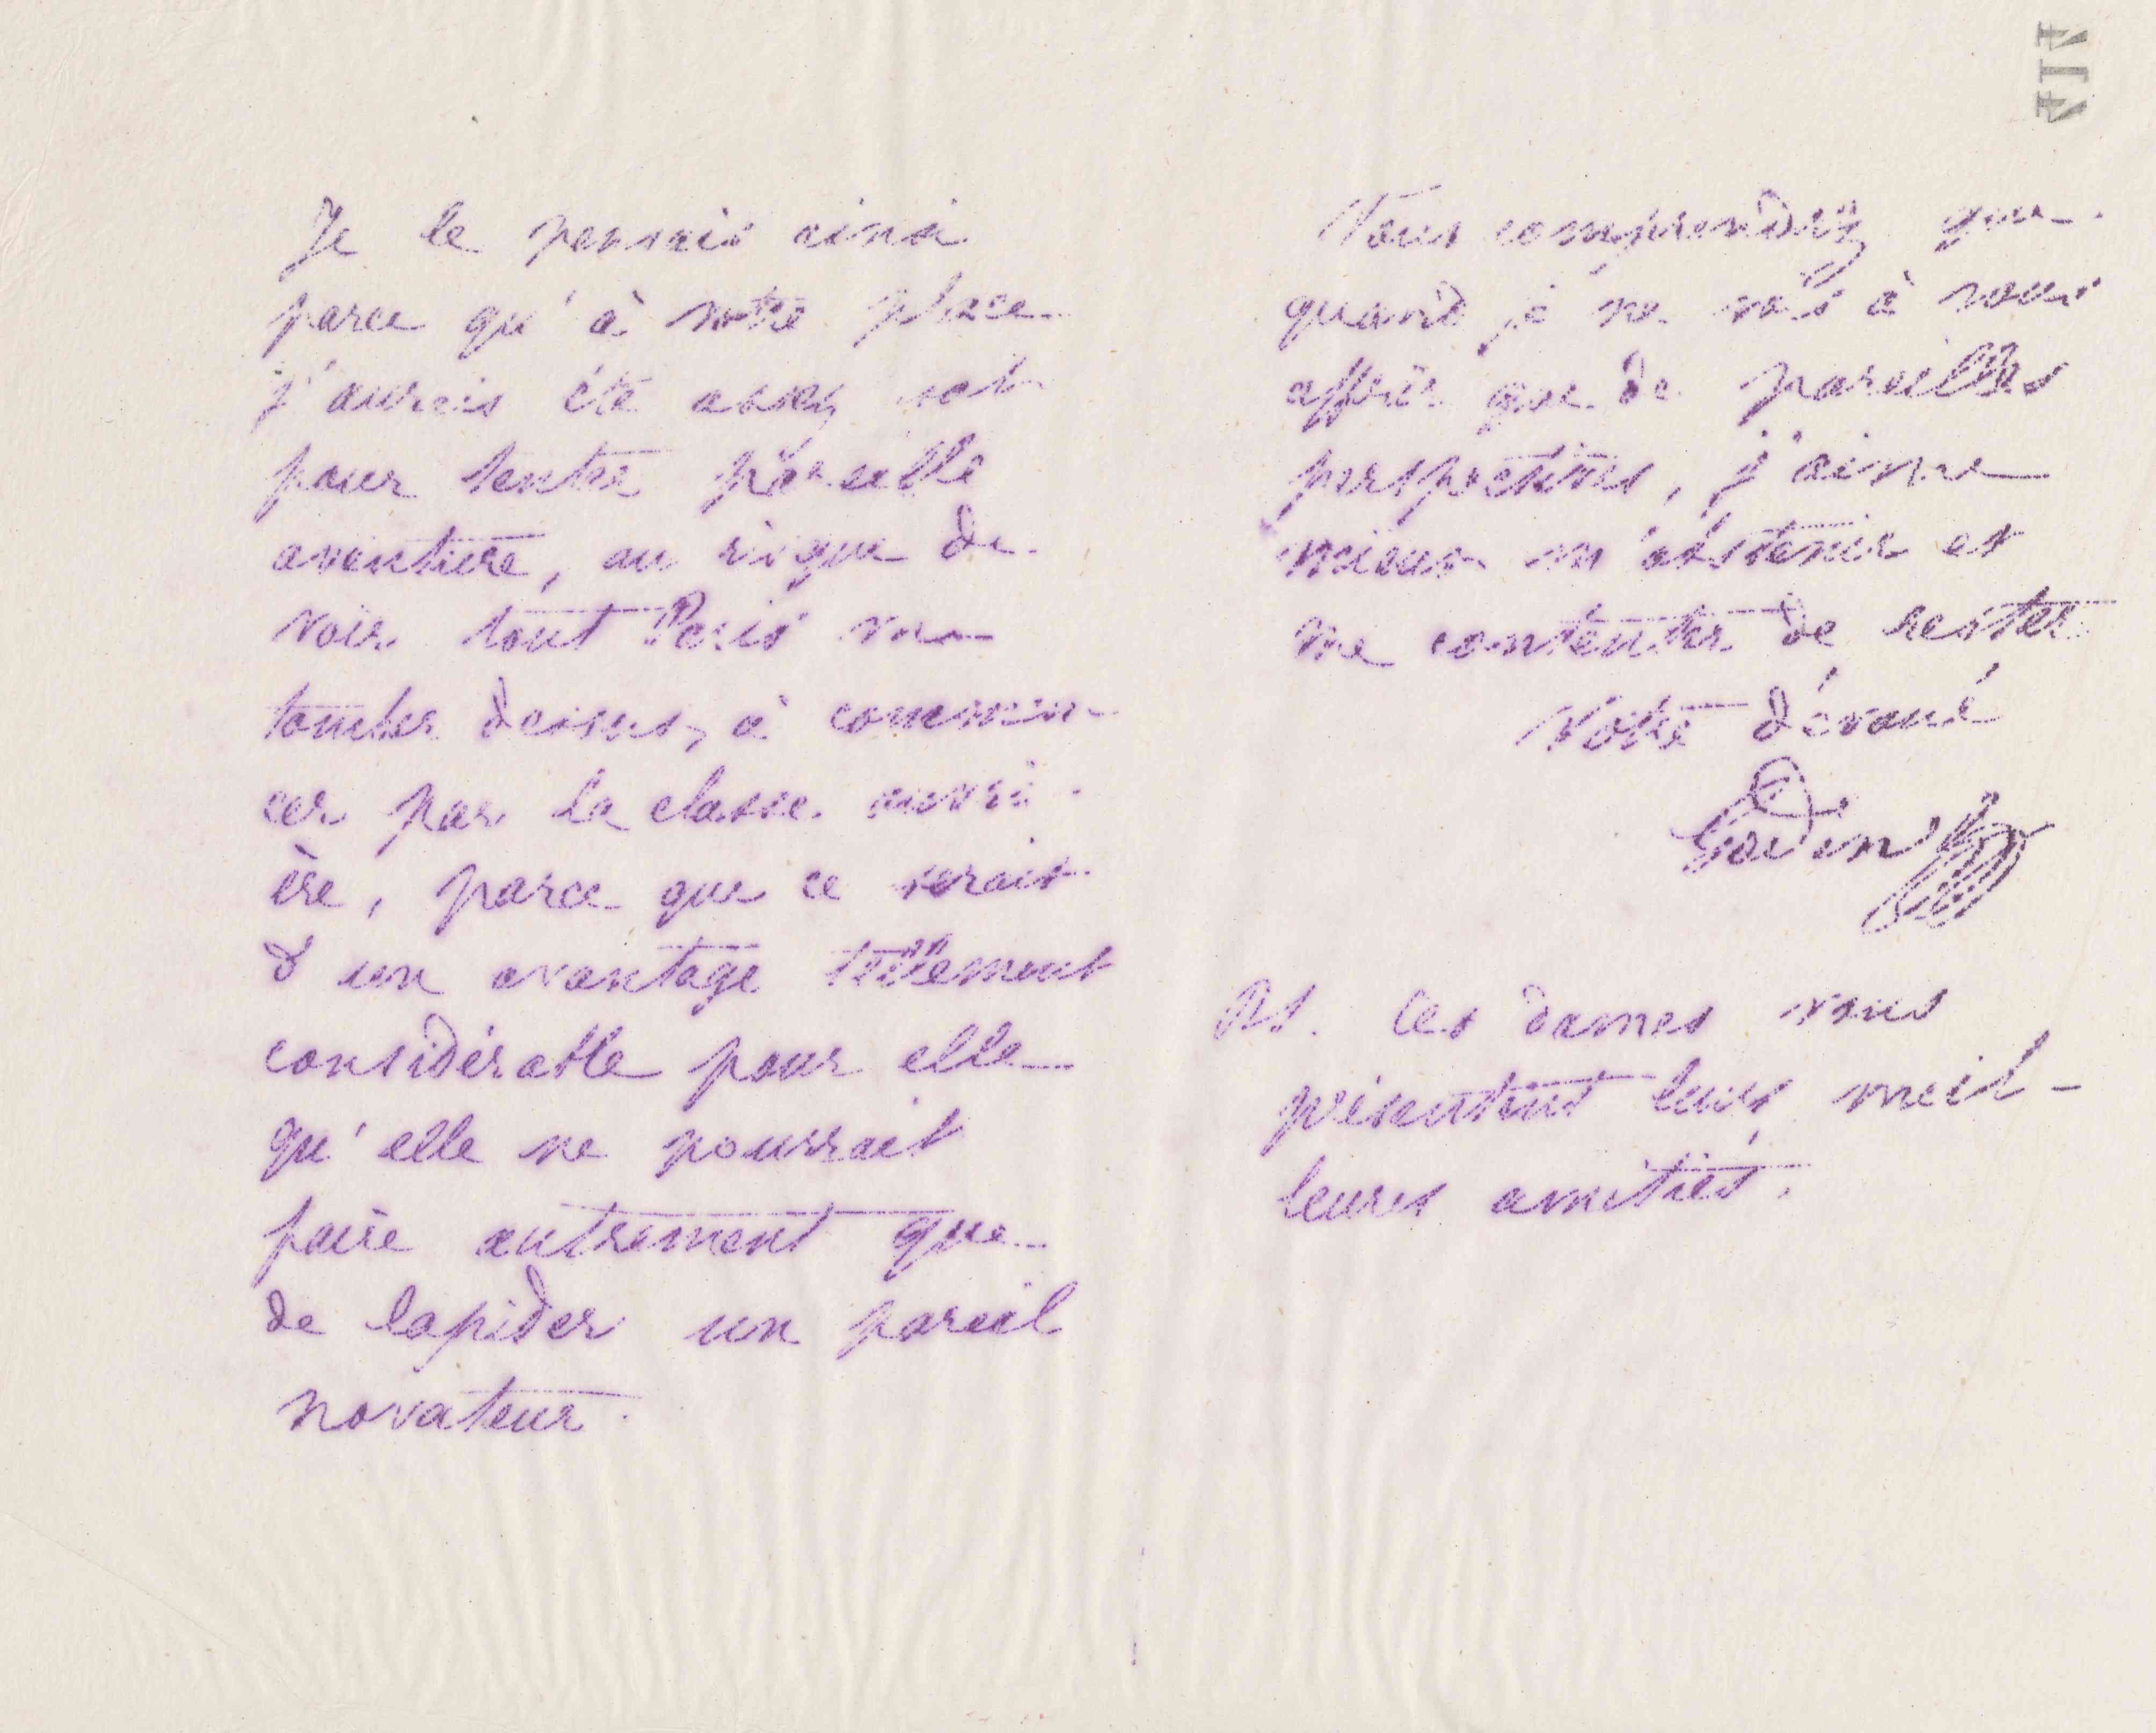 Je le pensais ainsi
parce qu'à votre place
j'aurais été assez sot
pour tenter pareille
aventure, au risque de
voir tout Paris me
tomber dessus, à commen-
cer par la classe ouvri-
ère, parce que ce serait
d'un avantage tellement
considérable pour elle
qu'elle ne pourrait
faire autrement que
de lapider un pareil
novateur.
Vous comprendrez que
quand je ne vais à vous
offrir que de pareilles
perspectives, j'aime
mieux m'abstenir et
me contenter de rester
Votre dévoué
Godin
PS. Ces dames vous
présentent leurs meil-
leures amitiés.